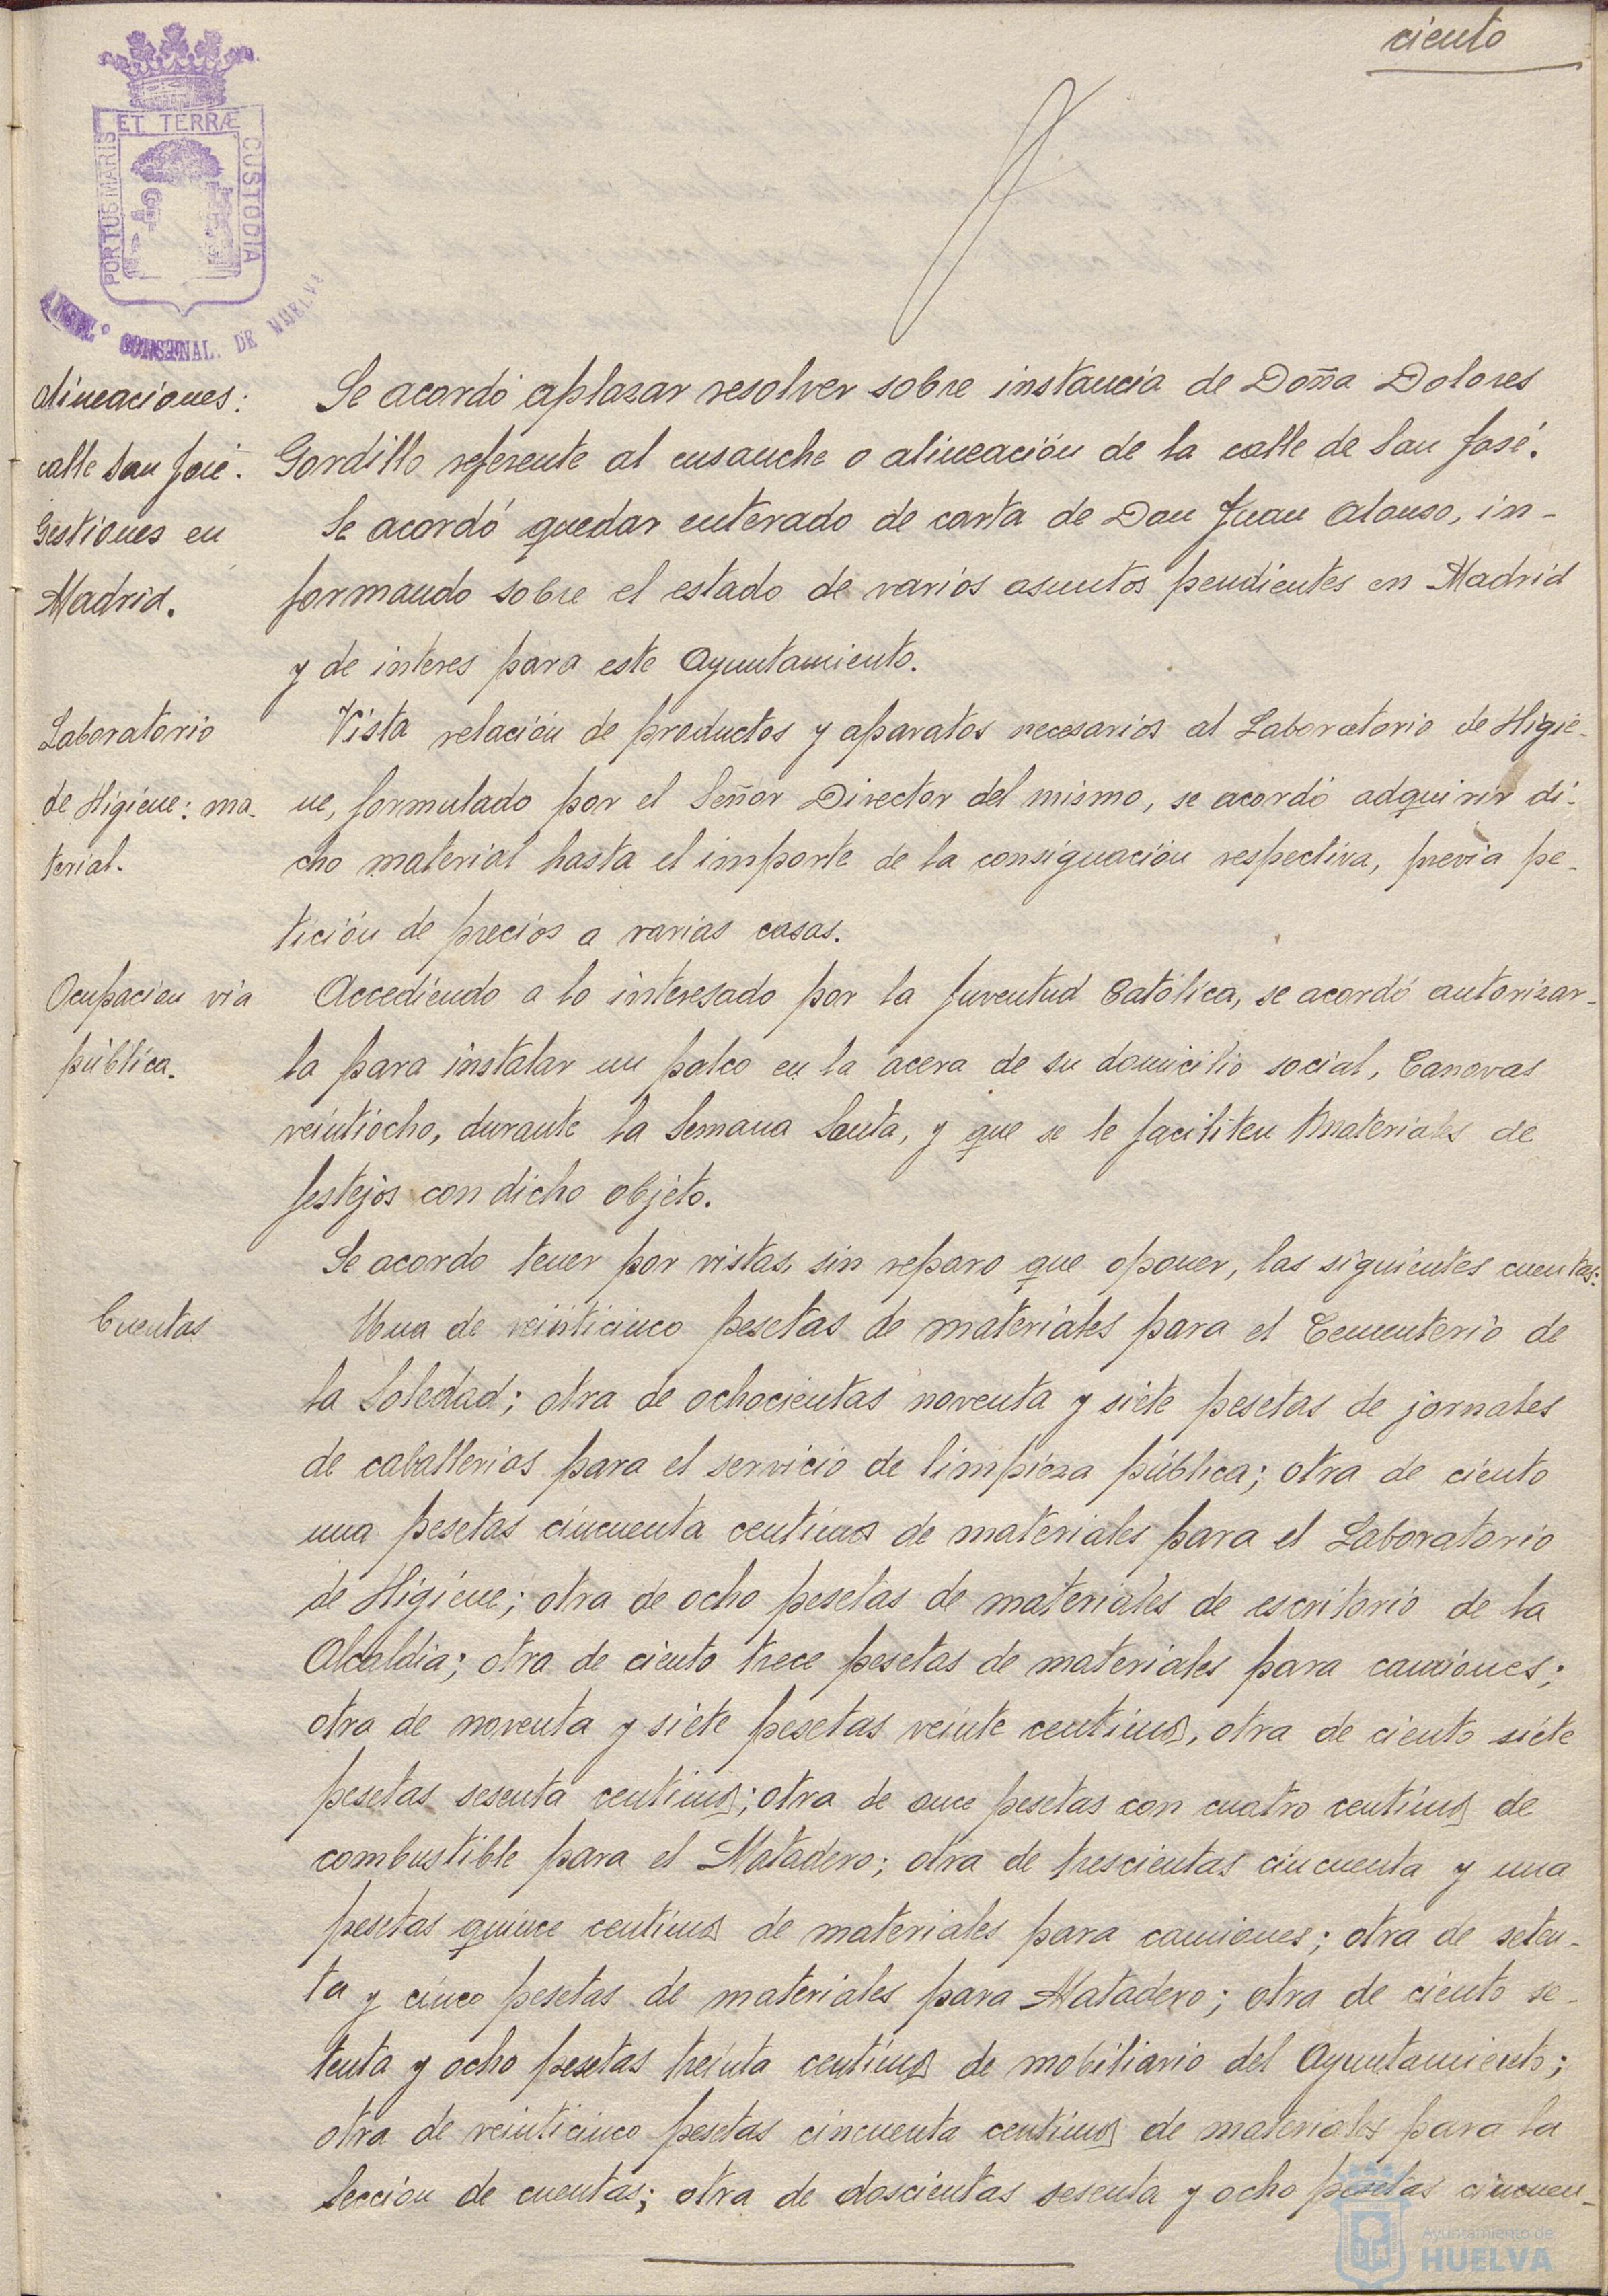 ciento
ET TERRÆ
PORTUS MARIS
CUSTODIA
DE HUELVA
Alineaciones:
calle San José.
Se acordó aplazar resolver sobre instancia de Doña Dolores
Gordillo referente al ensanche o alineación de la calle de San José.
Gestiones en
Madrid.
Se acordó quedar enterado de carta de Don Juan Alonso, in-
formando sobre el estado de varios asuntos pendientes en Madrid
y de interes para este Ayuntamiento.
Laboratorio
de Higiene: ma-
terial.
Vista relación de productos y aparatos necesarios al Laboratorio de Higie-
ne, formulado por el Señor Director del mismo, se acordó adquirir di-
cho material hasta el importe de la consignación respectiva, previa pe-
tición de precios a varias casas.
Ocupacion via
pública.
Accediendo a lo interesado por la Juventud Católica, se acordó autorizar-
la para instalar un palco en la acera de su domicilio social, Canovas
veintiocho, durante la Semana Santa, y que se le faciliten materiales de
festejos con dicho objeto.
Se acordo tener por vistas, sin reparo que oponer, las siguientes cuentas:
Cuentas
Una de veinticinco pesetas de materiales para el Cementerio de
la Soledad; otra de ochocientas noventa y siete pesetas de jornales
de caballerias para el servicio de limpieza pública; otra de ciento
una pesetas cincuenta centimos de materiales para el Laboratorio
de Higiene; otra de ocho pesetas de materiales de escritorio de la
Alcaldia; otra de ciento trece pesetas de materiales para camiones;
otra de noventa y siete pesetas veinte centimos, otra de ciento siete
pesetas sesenta centimos; otra de once pesetas con cuatro centimos de
combustible para el Matadero; otra de trescientas cincuenta y una
pesetas quince centimos de materiales para camiones; otra de seten-
ta y cinco pesetas de materiales para Matadero; otra de ciento se-
tenta y ocho pesetas treinta centimos de mobiliario del Ayuntamiento;
otra de veinticinco pesetas cincuenta centimos de materiales para la
Seccion de cuentas; otra de doscientas sesenta y ocho pesetas cincuen-
Ayuntamiento de
HUELVA